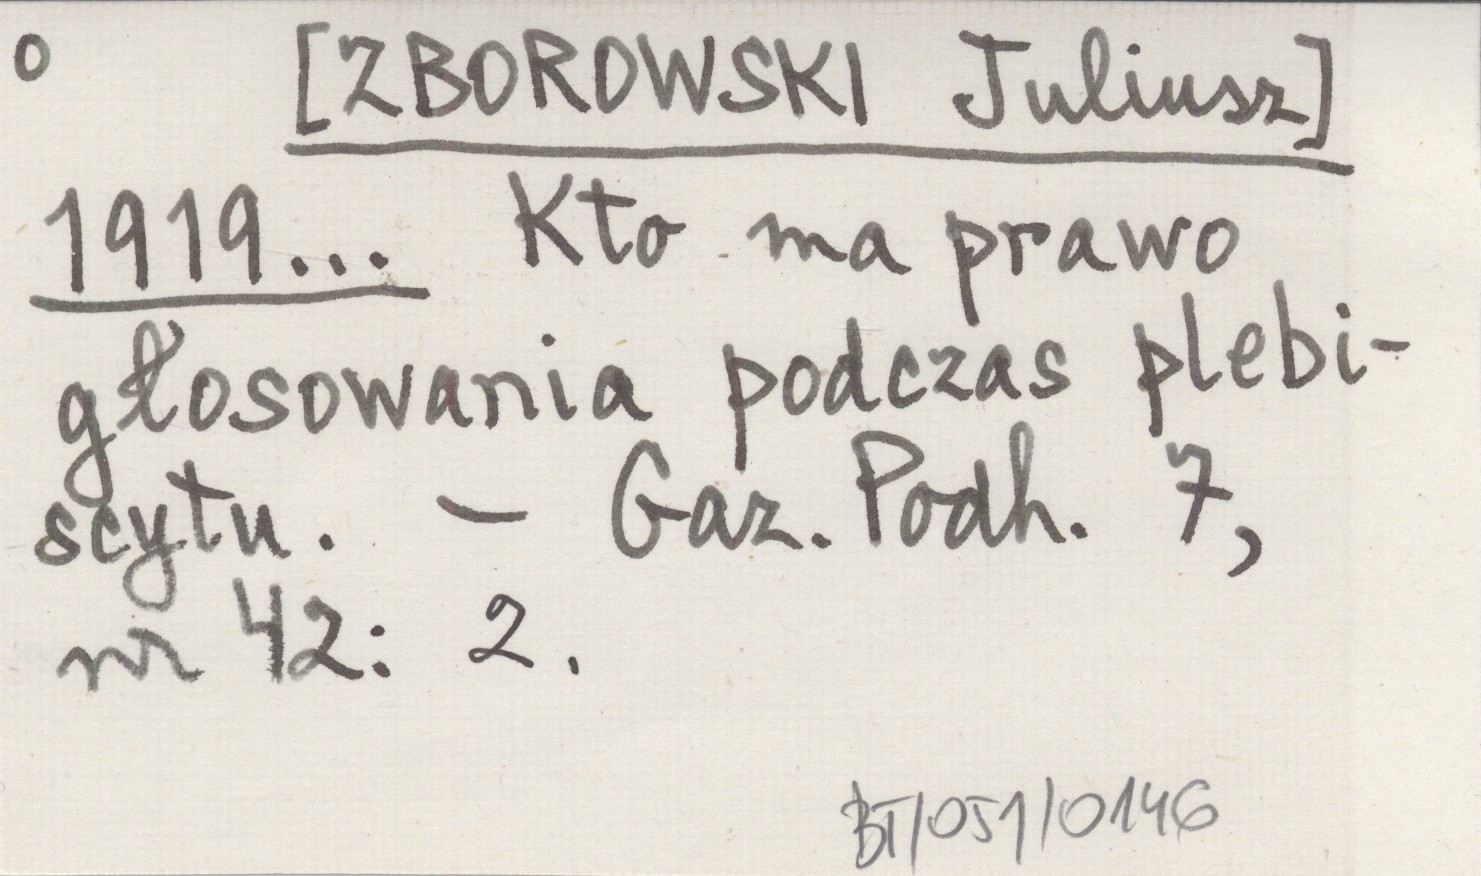 o [ZBOROWSKI Juliusz]
1919... Kto ma prawo
głosowania podczas plebi-
scytu. - Gaz. Podh. 7,
nr 42: 2.
BT/051/0146